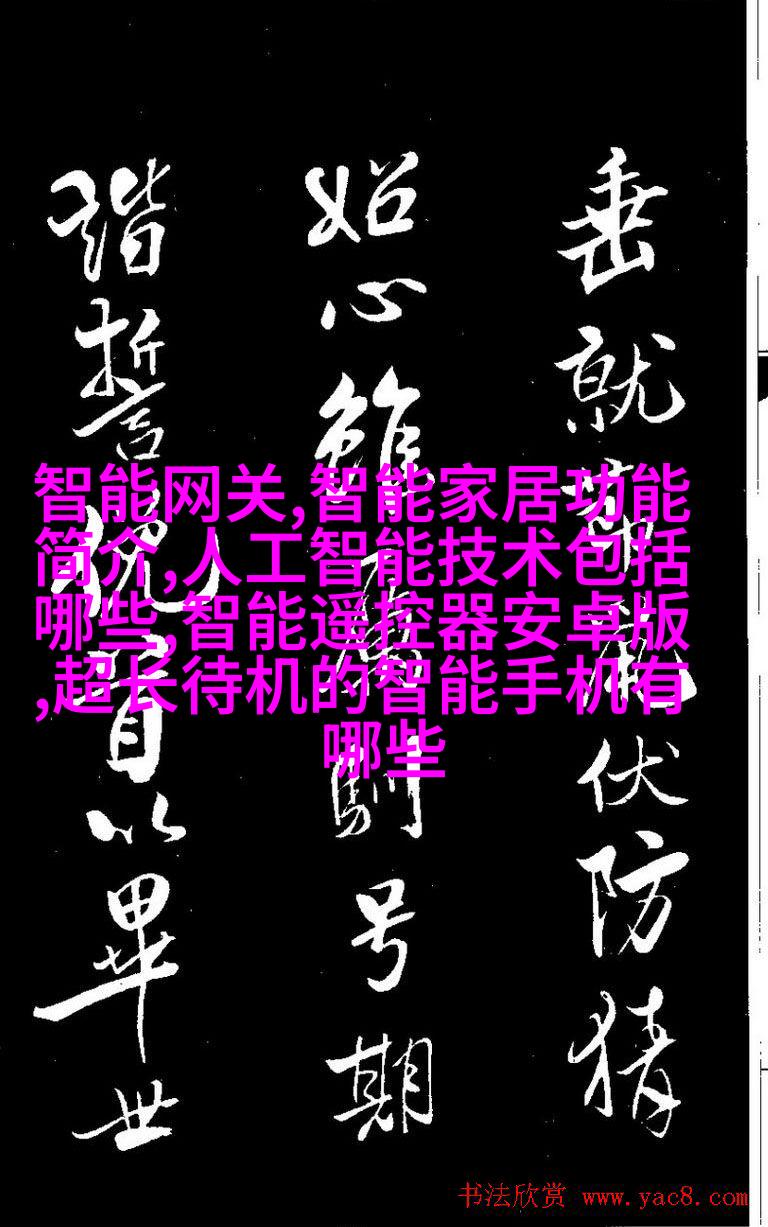 垂就伏防猜
心雖馴号期
誓首以畢世
智能网关,智能家居功能
简介,人工智能技术包括
哪些,智能遥控器安卓版
,超长待机的智能手机有
哪些
书法欣赏 www.yac8.com